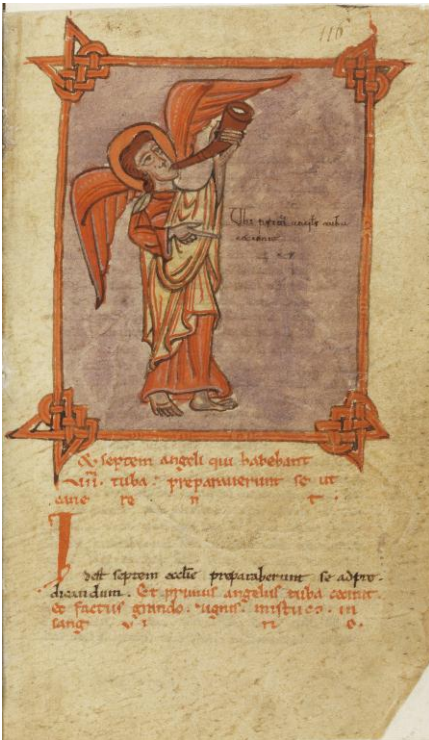 110
Ubi primus angelus tuba
cecinit
Et septem angeli qui habebant
VII. tuba: preparaverunt se ut
cane re n t.
Id est septem ecclie preparaberunt se ad pre-
dicandum. Et primus angelus tuba cecinit.
et factus grando. ignis. mistus. in
sang vi n e.